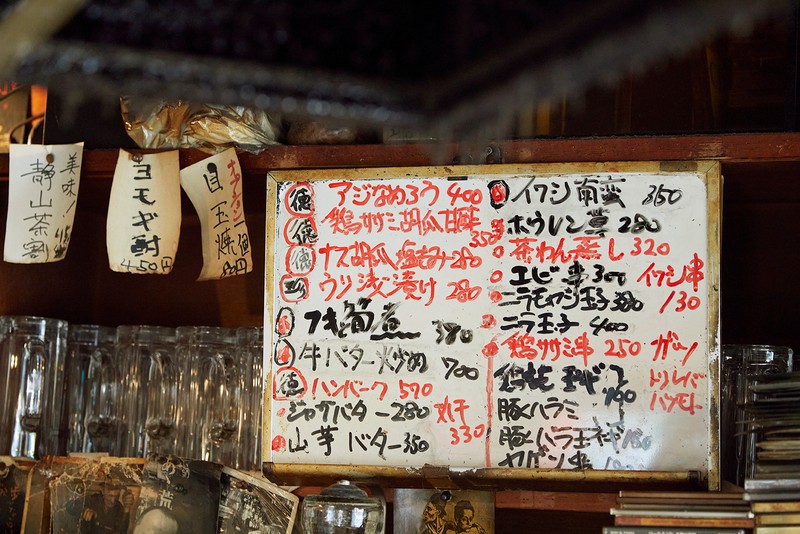 美味!
静山茶割
ヨモギ酎
450円
オプション
目玉焼
徳 アジなめろう 400
徳 鶏ササミ胡瓜胡麻
350
徳 ナス胡瓜塩もみ 280
ウリ浅漬け 280
フキと筍煮 380
牛バター炒め 700
徳 ハンバーク 570
ジャガバター 280
丸干
330
山芋バター 350
イワシ南蛮 350
ホウレン草 280
茶わん蒸し 320
エビ串 300
イワシ串
130
ニラモヤシ玉子
ニラ玉子 400
鶏ササミ串 250
ガツ
トリレバ
ハツモト
豚ハラミ
豚ハラ玉ネギ
ヤゲン串